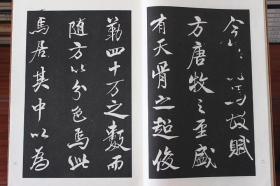 今馬故賦
方唐牧之至盛
有天骨之超俊
勒四十万之數而
隨方以分色焉此
馬居其中以為